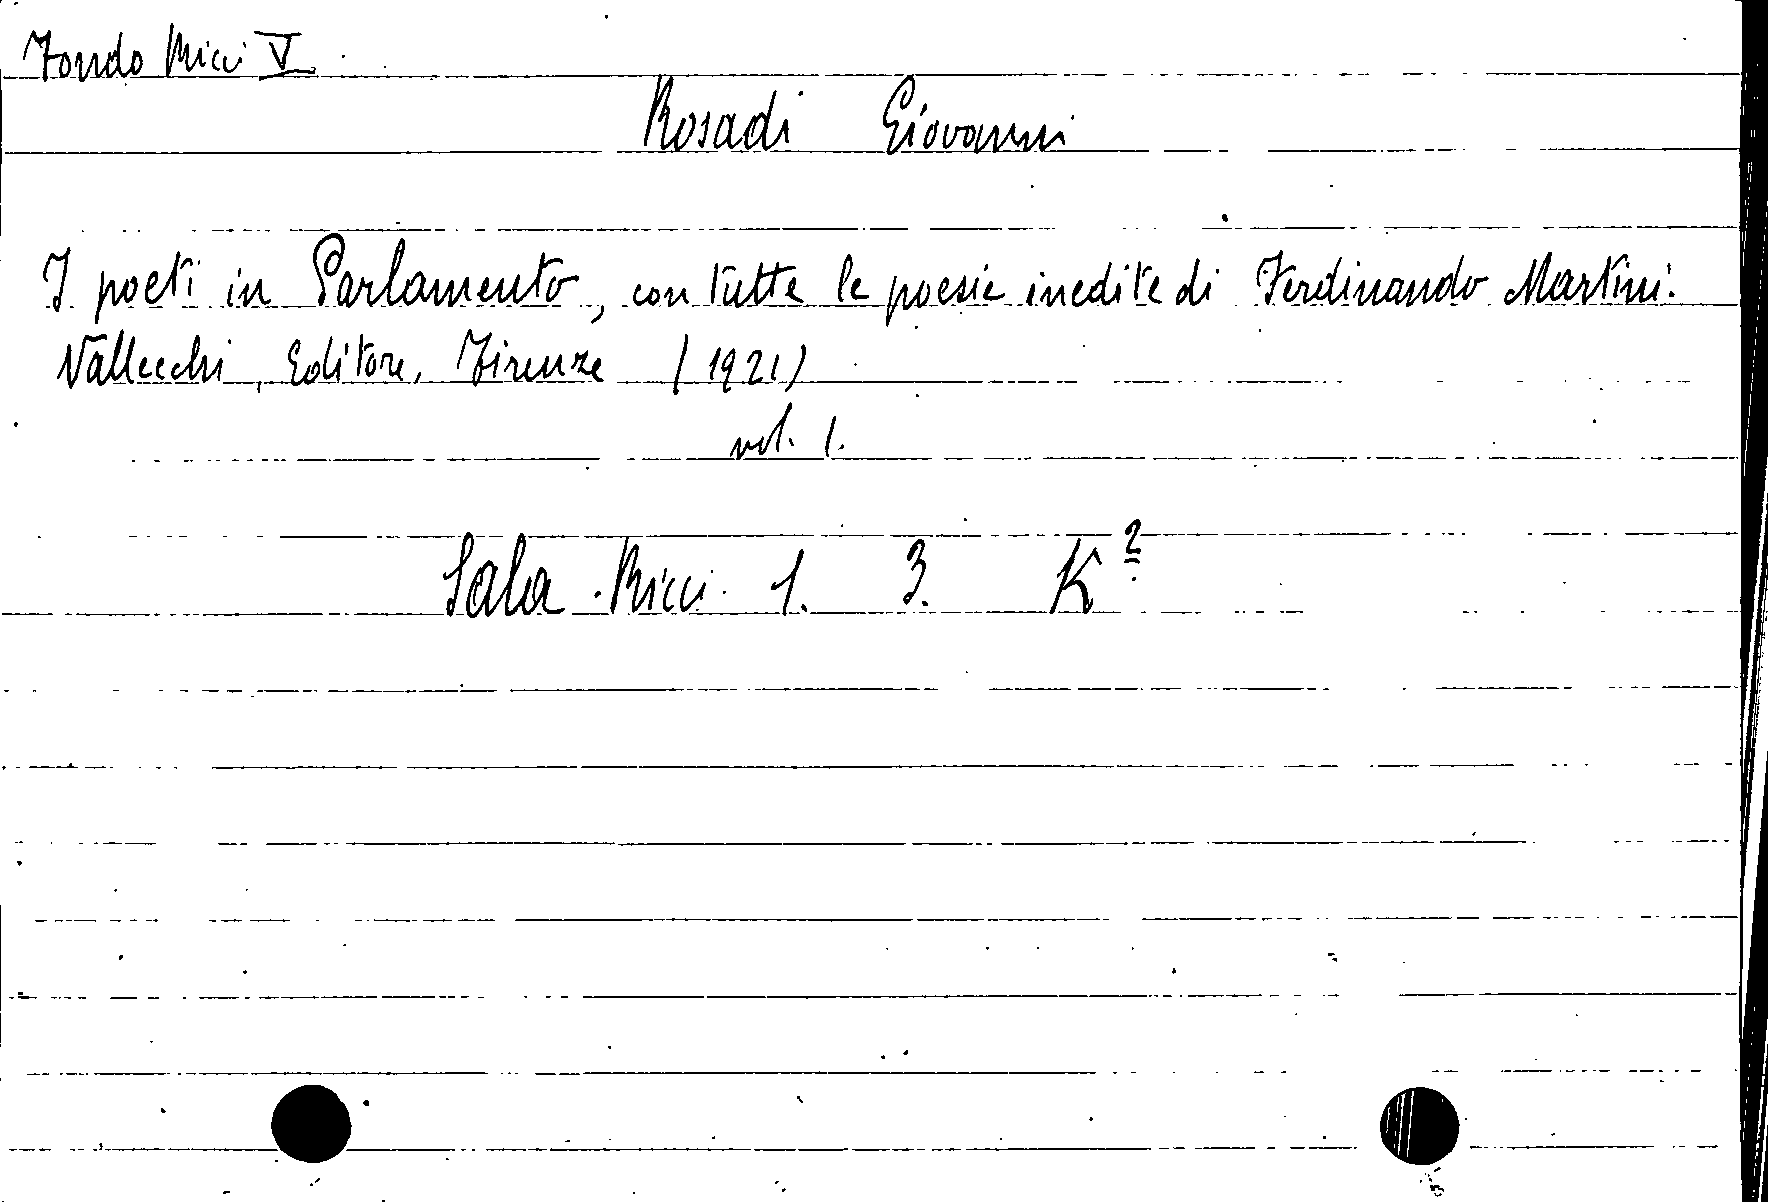 Fondo Ricci V
Rosadi Giovanni
I poeti in Parlamento, con tutte le poesie inedite di Ferdinando Martini.
Vallecchi, Editore, Firenze (1921)
vol. 1.
Sala Ricci 1. 3. K²